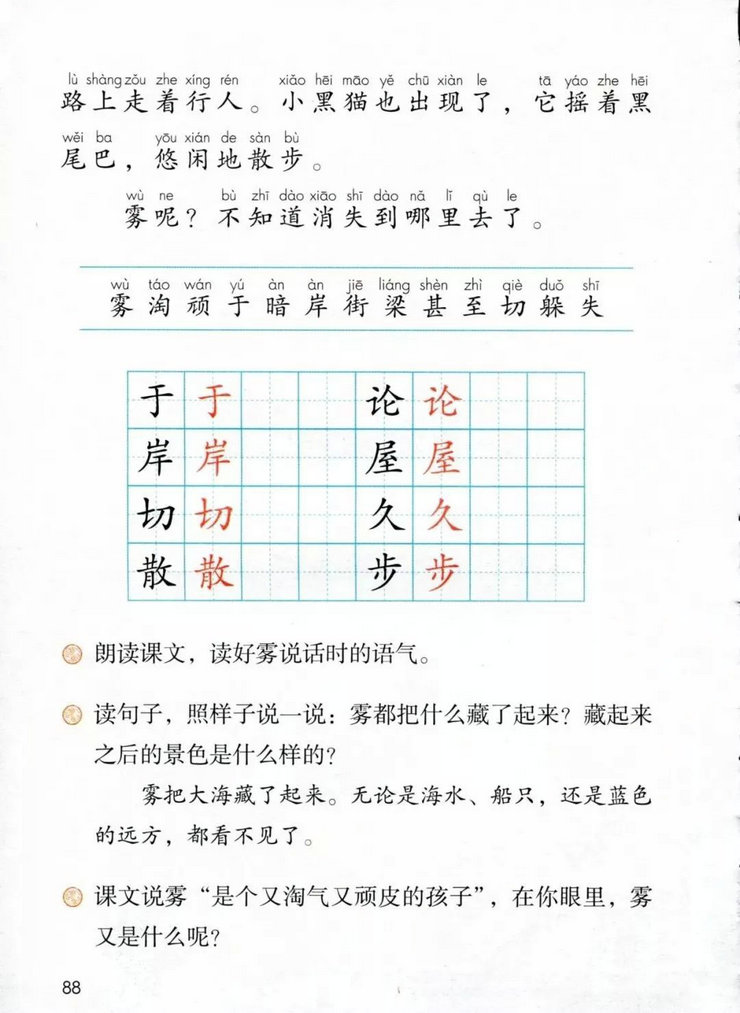 lù shàng zǒu zhe xíng rén xiǎo hēi māo yě chū xiàn le tā yáo zhe hēi
路上走着行人。小黑猫也出现了，它摇着黑
wěi ba yōu xián de sàn bù
尾巴，悠闲地散步。
wù ne bù zhī dào xiāo shī dào nǎ lǐ qù le
雾呢？不知道消失到哪里去了。
wù táo wán yú àn àn jiē liáng shèn zhì qiè duǒ shī
雾淘顽于暗岸街梁甚至切躲失
于于论论
岸岸屋屋
切切久久
散散步步
朗读课文，读好雾说话时的语气。
读句子，照样子说一说：雾都把什么藏了起来？藏起来
之后的景色是什么样的？
雾把大海藏了起来。无论是海水、船只，还是蓝色
的远方，都看不见了。
课文说雾“是个又淘气又顽皮的孩子”，在你眼里，雾
又是什么呢？
88